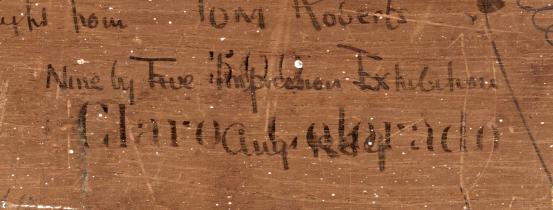 from Tom Roberts
Nine by Five Impression Exhibition
Claro Colorado
Aug 1889